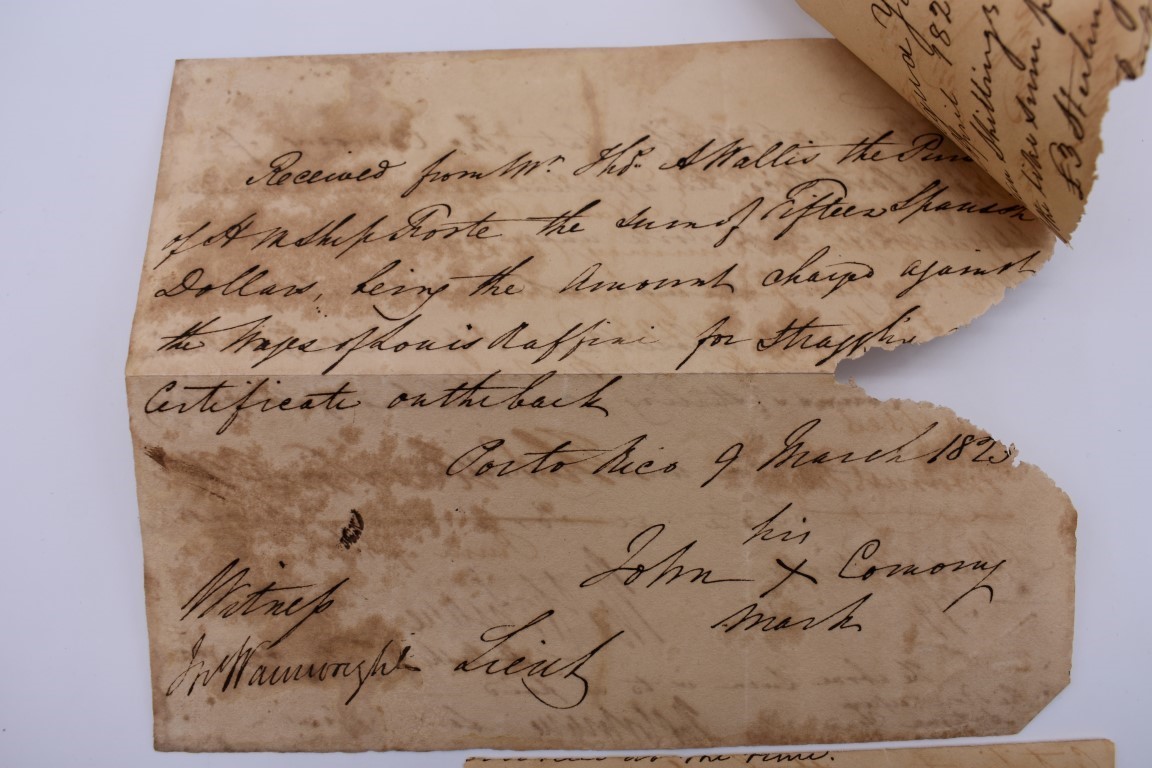 Received from Mr. Thos. A Wallis the Pur
of H M Ship Forte the sum of Fifteen Spanish
Dollars, being the Amount charged against
the Wages of Louis Raffini for Stragglin
Certificate on the back
Porto Rico 9 March 1823
his
John X Comony
mark
Witness
Jno Wainwright Lieut
182
Shillings
the like sum p
£3 Sterlin
at the time.